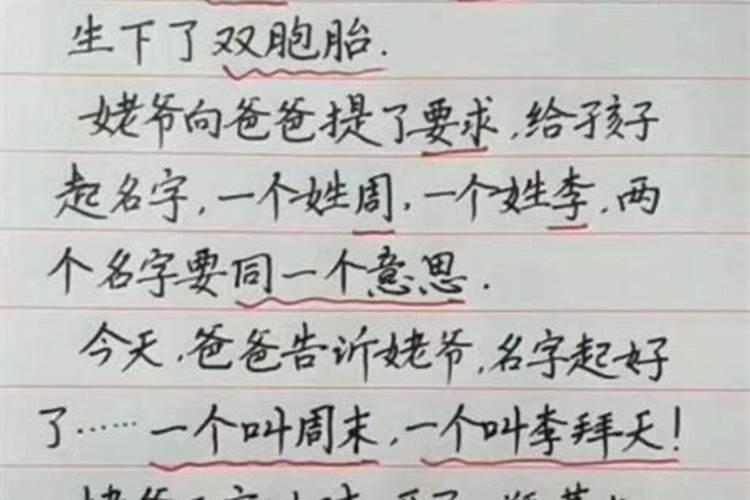 生下了双胞胎.
姥爷向爸爸提了要求,给孩子
起名字,一个姓周,一个姓李,两
个名字要同一个意思.
今天,爸爸告诉姥爷,名字起好
了……一个叫周末,一个叫李拜天!